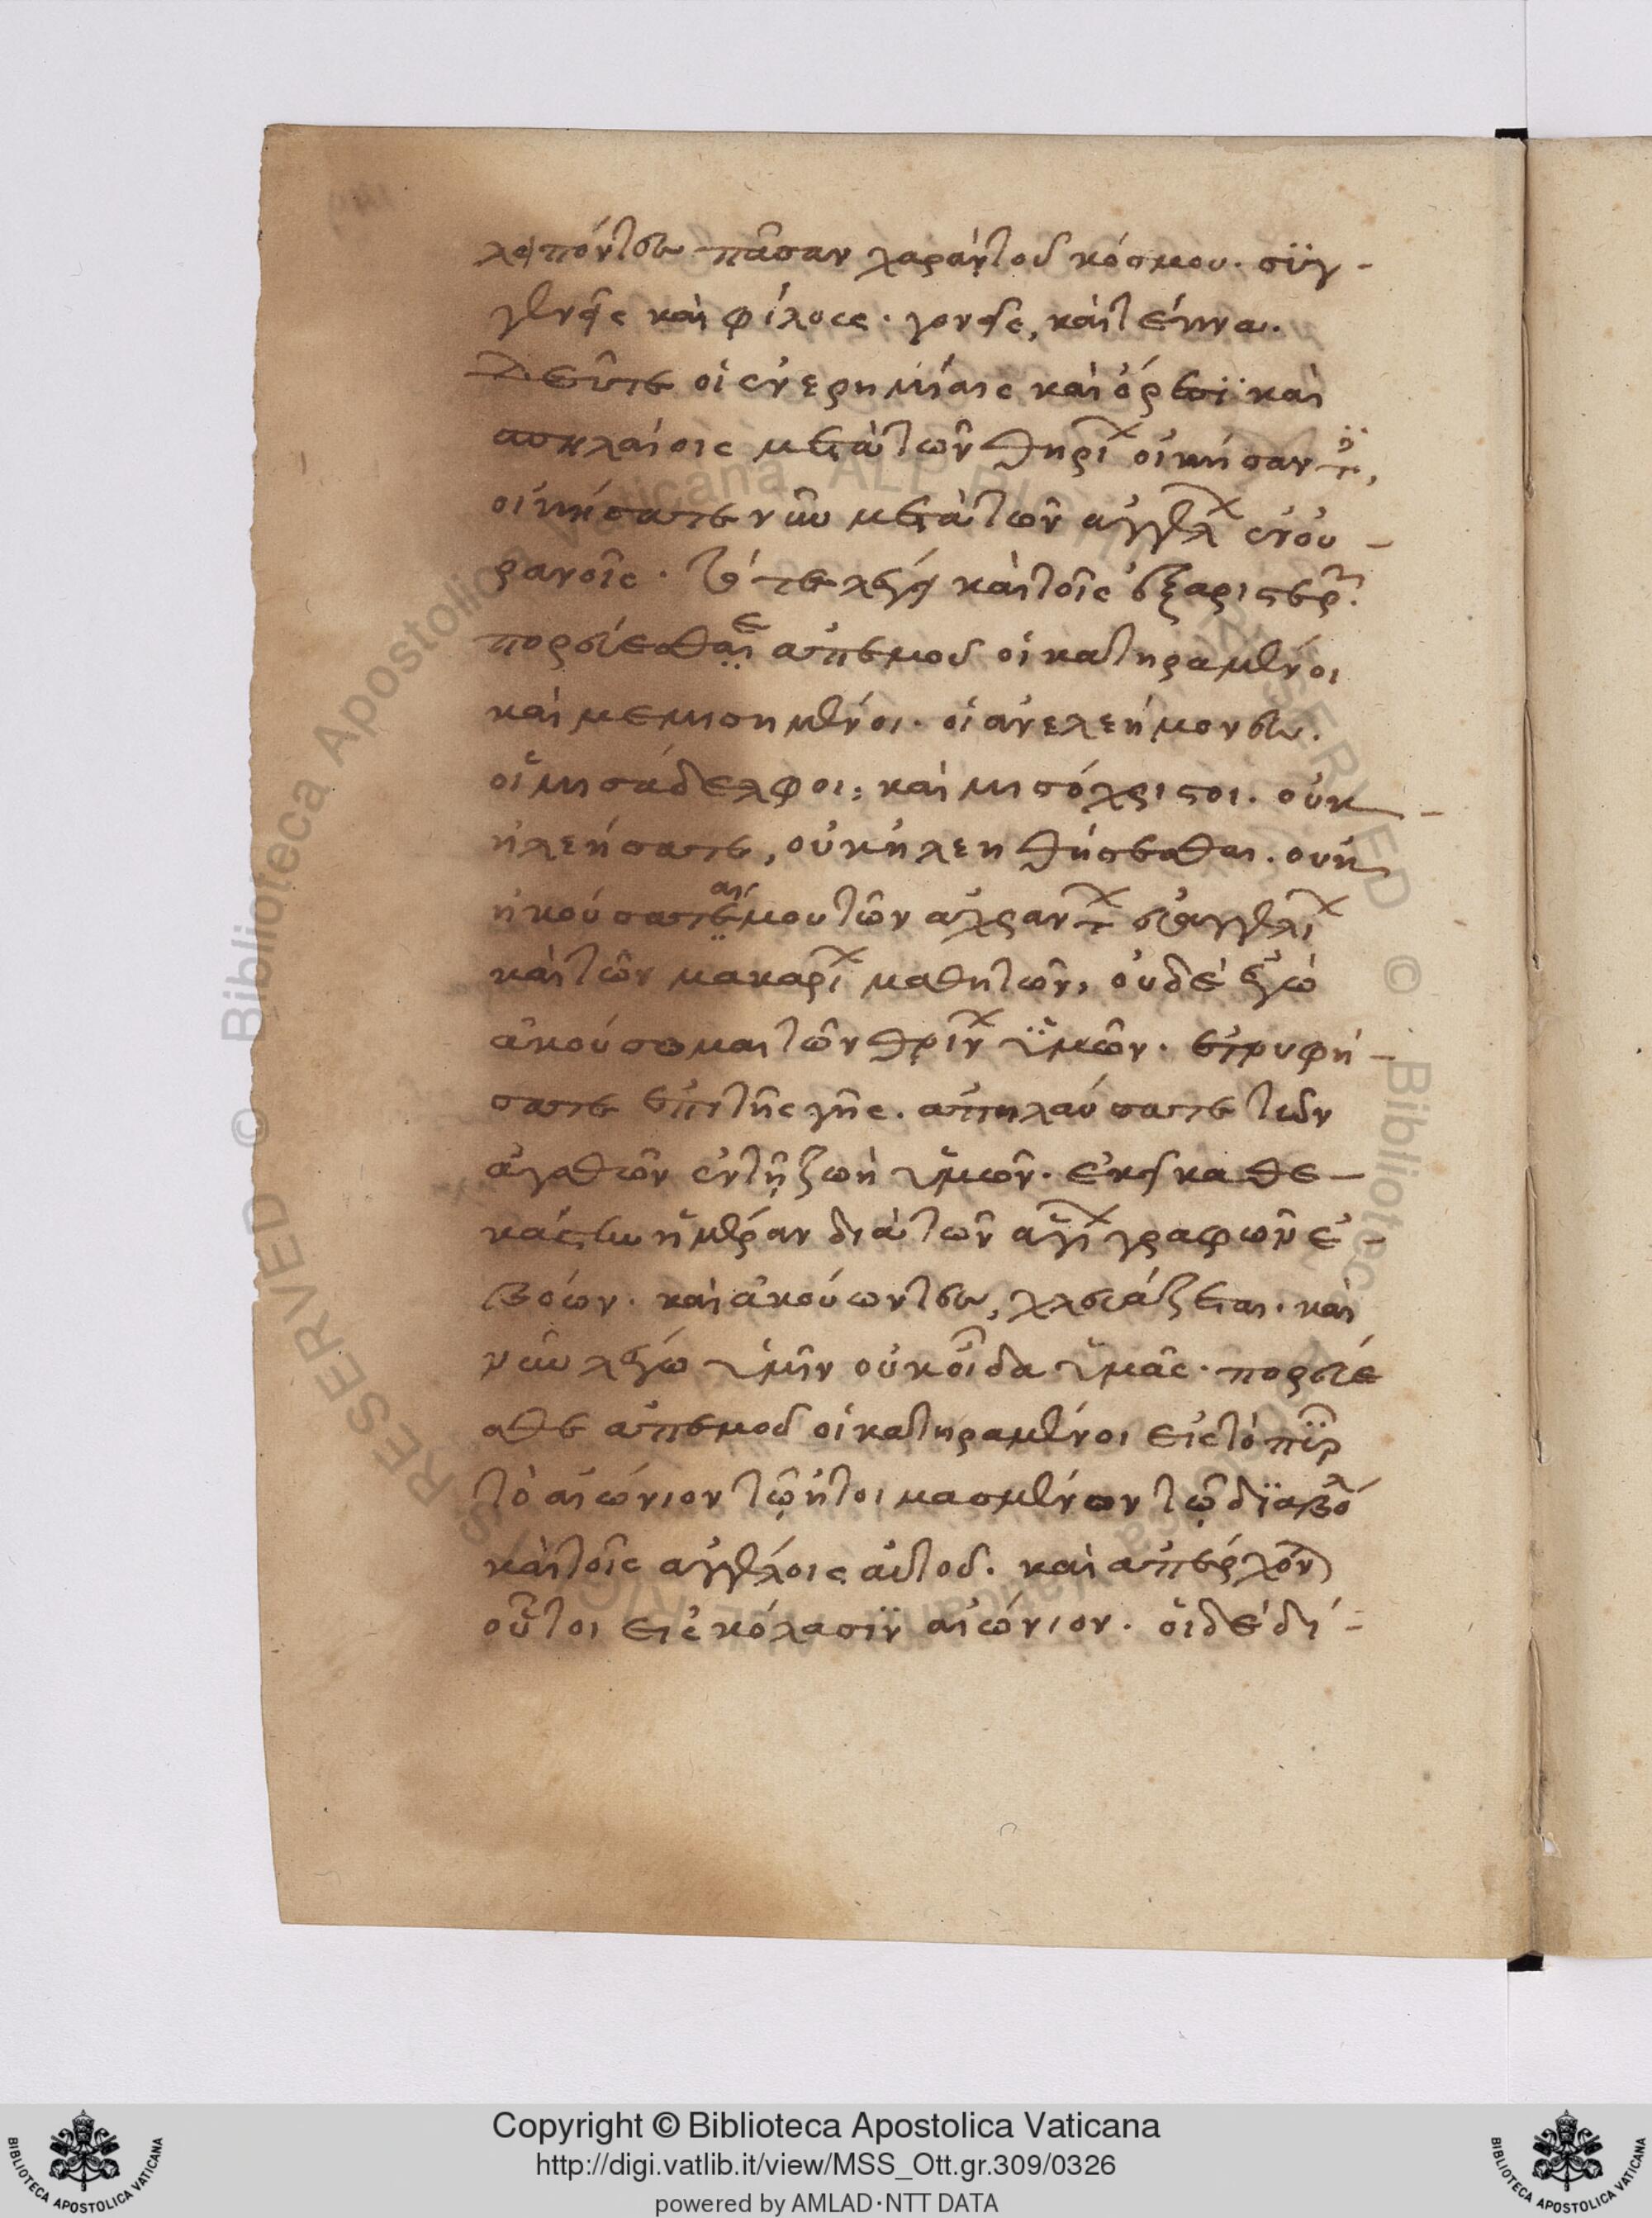 λειπόντες πᾶσαν χαρὰν τοῦ κόσμου. σϋγ-
γενεῖς καὶ φίλους. γονεῖς, καὶ τέκνα.
Δεῦτε οἱ ἐν ἐρημίαις καὶ ὄρεσϊ καὶ
σπηλαίοις μετὰ τῶν θηρί οἰκήσαντ,
οἰκήσατε νῦν μετὰ τῶν ἀγγέλ ἐν οὐ-
ρανοῖς. τότε λέγει καὶ τοῖς ἐξ ἀριστερ.
πορεύεσθαι ε ἀπ' ἐμοῦ οἱ κατηραμένοι
καὶ μεμισημένοι. οἱ ἀνελεήμονες.
οἱ μισάδελφοι, καὶ μισόχριστοι. οὐκ
ἠλεήσατε, οὐκ ἠλεηθήσεσθαι. οὐκ
ἠκούσατέ αι μου τῶν ἀχράντ εὐαγγελι
καὶ τῶν μακαρί μαθητῶν, οὐδὲ ἐγὼ
ἀκούσομαι τῶν θρίν ὑμῶν. ἐτρυφή-
σατε ἐπὶ τῆς γῆς. ἀπηλαύσατε τῶν
ἀγαθῶν ἐν τῇ ζωῇ ὑμῶν. ἐκεῖ καθε-
κάστην ἡμέραν διὰ τῶν ἁγί γραφῶν ἐ-
βόων. καὶ ἀκούωντες, χλευάζεται. καὶ
νῦν λέγω ὑμῖν οὐκ οἶδα ὑμᾶς. πορεύε
σθε ἀπ' ἐμοῦ οἱ κατηραμένοι εἰς τὸ πῦρ
τὸ αἰώνιον τῷ ἡτοιμασμένον τῷ δϊαβό
καὶ τοῖς ἀγγέλοις αὐτοῦ. καὶ ἀπέρχον
οὗτοι εἰς κόλασϊν αἰώνιον. οἱ δὲ δί-
Copyright © Biblioteca Apostolica Vaticana
http://digi.vatlib.it/view/MSS_Ott.gr.309/0326
powered by AMLAD·NTT DATA